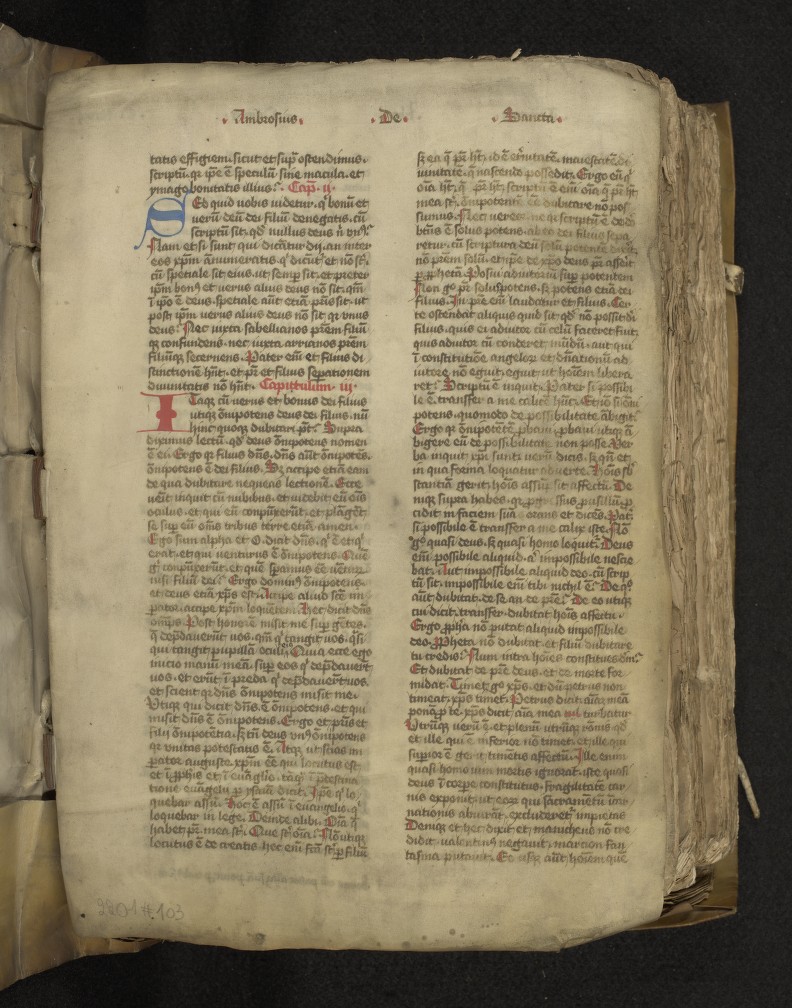 Ambrosius · De · Sancta
tatis effigiem. sicut et supͣ ostendimus.
scriptū. qꝫ ip̄e ē speculū sine macula. et
ymago bonitatis illius. Cap. ij.
Sed quid uobis uidetur. qͥ bonū et
uerū deū dei filiū denegatis. cū
scriptū sit. qd̓ nullus deus nͥ vnꝰ.
Nam et si sunt qui dicātur dij. an inter
eos xp̄m ānumeratis. qͥ dicūtᷣ et nō sūt.
cū spetiale sit eius. ut semꝑ sit. et preter
ip̄m bonꝰ et verus alius deus nō sit. qm̄
ī ip̄o ē deus. spetiale aūt etiā pr̄is sit. ut
post ip̄m verus alius deus nō sit. qꝫ vnus
deus. Nec iuxta sabellianos prēm filiū
qꝫ confundens. nec iuxta arrianos prēm
filiūqꝫ secernens. Pater em̄ et filius di
stinctionē hn̄t. et pr̄ et filius sepationem
diuinitatis nō hn̄t. Capittulum. iij.
Itaqꝫ cū uerus et bonus dei filius
utiqꝫ ōmipotens deus dei filius. nū
hinc quoqꝫ dubitari pōt. Supra
diximus lectū. qd̓ deus ōnipotens nomen
ē ei. Ergo qꝫ filius dn̄s. dn̄s aūt ōnipotēs.
ōnipotens ē dei filius. Sꝫ accipe etiā eam
de qua dubitare nequeas lectionē. Ecce
ueīt inquit cū nubibus. et uidebit eū oīs
oculus. et qui eū conpūxerūt. et plāgēt
se suꝑ eū om̄s tribus terre etiā amen.
Ego sum alpha et O. dicit dn̄s. qͥ ē et qͥ
erat. et qui venturus ē ōnipotens. Quē
gͦ conpūxerūt. et quē sꝑamus eē ventur̄
nisi filiū dei. Ergo dominꝰ ōnipotens.
et deus etiā xp̄s est. Accipe aliud sc̄ē im
pator. accipe xp̄m loquētem. Hec dicit dn̄s
om̄ps. Post honorē misit me suꝑ gētes.
qͥ dep̄dauerūt uos. qm̄ qͥ tangit uos. qͣsi
qui tangit pupillā oculi eiꝰ. Quia ecce ego
inicio manū meā. suꝑ eos qͥ dep̄dauerūt
uos. et erūt ī preda qͥ dep̄dauerūt uos.
et scient qꝫ dn̄s ōnipotens misit me.
Vtiqꝫ qui dicit dn̄s ē ōnipotens. et qui
misit dn̄s ē ōnipotens. Ergo et pr̄is et
filij ōnipotētia. sꝫ tn̄ deus vnꝰ ōnipotens
qꝫ vnitas potestatis ē. Atqꝫ ut scias im
pator auguste. xp̄m eē qui locutus est
et ī ꝓphis et ī euāglio. tāqͣ ī p̄destina
tione euāgelij ꝑ ysaiā dicit. Ip̄e qͥ lo
quebar assū. Hoc ē assū ī euangelio. qͥ
loquebar in lege. Deinde alibi. Oīa qͥ
habet pr̄ mea sūt. Que sūt oīa. Nō utiqꝫ
locutus ē de creatis. hec em̄ fc̄ā sūt ꝑ filiū
sꝫ ea q̄ pr̄ hꝫ. id ē et̓nitatē. maiestatē. di
uinitatē. q̄ nascendo possedit. Ergo eū qͥ
oīa hꝫ. q̄ pr̄ hꝫ. scriptū ē em̄. oīa q̄ pr̄ hꝫ
mea sūt. ōnipotentē eē dubitare nō pos
sumus.
retur. cū scriptura deū solū potentē dicit.
nō prēm solū. et ip̄e de xp̄o deus pr̄ asserit
ꝑ ꝓphetā. Posui adiutoriū suꝑ potentem
Non gͦ pr̄ solus potens. sꝫ potens etiā dei
filius. In prē em̄ laudatur et filius. Cer
te ostendat aliquis quid sit qd̓ nō possit di
filius. quis ei adiutor cū celū faceret fuit.
quis adiutor cū conderet mūdū. aut qui
ī constitutiōe angeloꝝ et dn̄ationū ad
iutore nō eguit. eguit ut hoīem libera
ret. Scriptū ē inquit. Pater si possibi
le ē. transfer a me calicē hūc. Et nō si ōni
potens. quomodo de possibilitate ābigit.
Ergo qꝫ ōnipotētē ꝓbaui. ꝓbaui utiqꝫ ā
bigere eū de possibilitate non posse. Ver
ba inquit xp̄i sunt. verū dicis. sꝫ q̄n et
in qua forma loquatur aduerte. Hoīs sb̄
stantiā gerit. hoīs assūp̄sit affectū. De
niqꝫ supra habes. qꝫ ꝓgressus pusillū. ꝓ
cidit in faciem suā orans et dicēs. Pat̓.
si possibile ē transfer a me calix iste. Nō
gͦ quasi deus. sꝫ quasi homo loquitᷣ. Deus
em̄ possibile aliquid. aͨ impossibile nescie
bat. Aut impossibile aliquid deo. cū scrip
tū sit. impossibile em̄ tibi nichil ē. De qͦ
aūt dubitat. de se. an de prē. De eo utiqꝫ
cui dicit. transfer. dubitat hoīs affectu.
Ergo ꝓpha nō putat aliquid impossibile
deo. Ꝓpheta nō dubitat. et filiū dubitare
tu credis. Num intra hoīes constitues dm̄.
Et dubitat de prē deus. et de morte for
midat. Timet gͦ xp̄s. et dū petrus non
timeat. xp̄s timet. Petrus dicit. aīaꝫ meā
ponā ꝓ te. xp̄s dicit aīa mea turbatur
Vtrūqꝫ verū ē et plenū utrūqꝫ rōnis. qd̓
et ille qui ē inferior nō timet. et ille qui
suꝑior ē gerit timētis affectū. Ille enim
quasi homo uim mortis ignorat. iste quasi
deus ī corꝑe constitutus. fragilitatē car
nis exponit. ut eoꝝ qui sacramētū īcar
nationis abiurāt. excluderetᷣ impietas
Deniqꝫ et hec dixit. et manicheus nō cre
didit. valentinꝰ negauit. marcion fan
tasma putauit. Eo usqꝫ aūt hoīem quē
2201 # 103